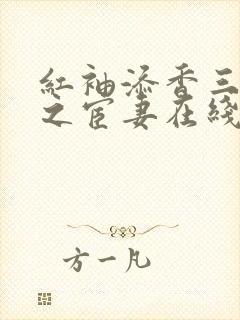 紅袖添香三
之宦妻在綫
方一凡